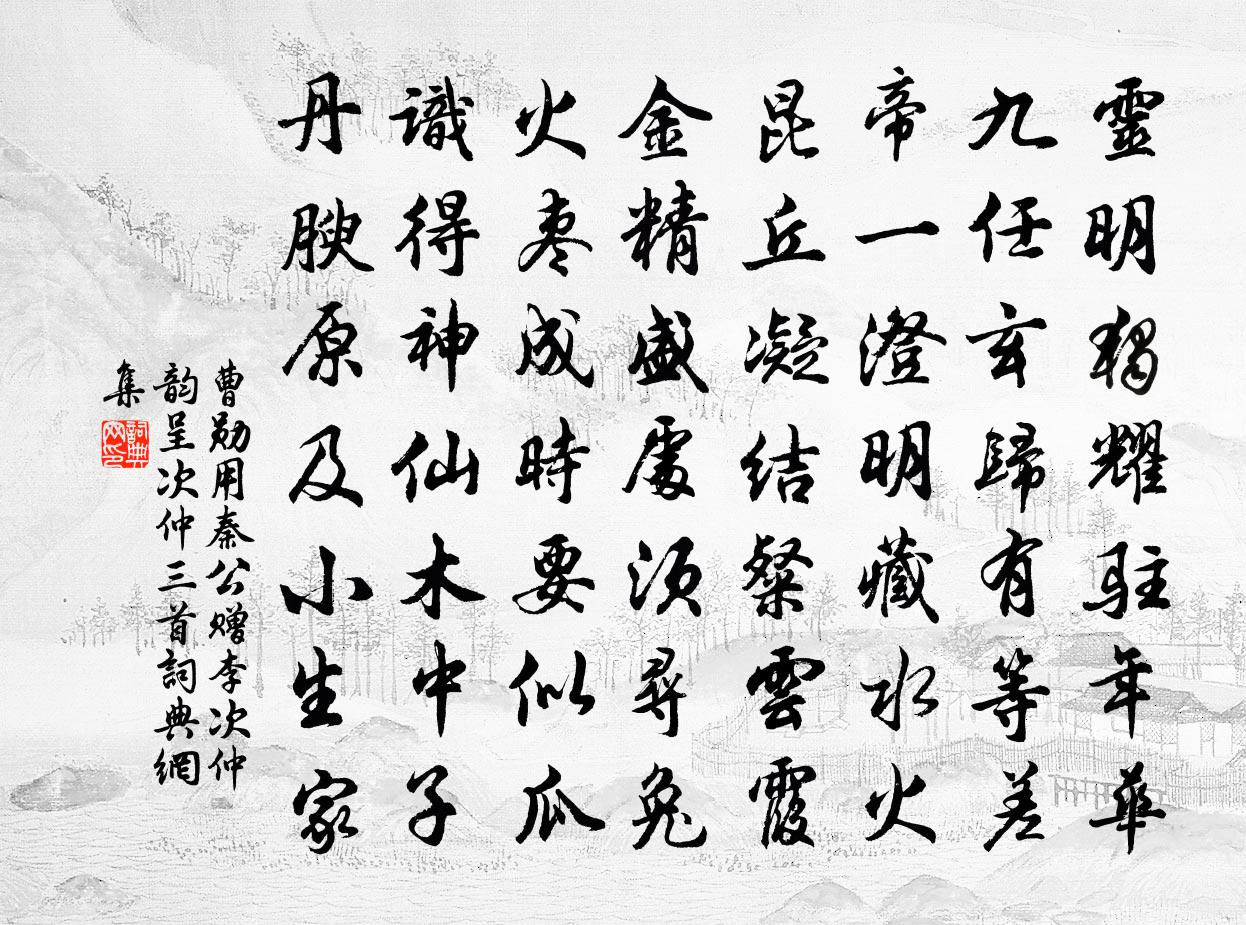 靈明獨耀駐年華
九任玄歸有等差
帝一澄明藏水火
昆丘凝結粲雲霞
金精盛處須尋兔
火棗成時要似瓜
識得神仙木中子
丹腴原及小生家
曹勛用秦公赠李次仲
韵呈次仲三首詞典網
集
詞典網印